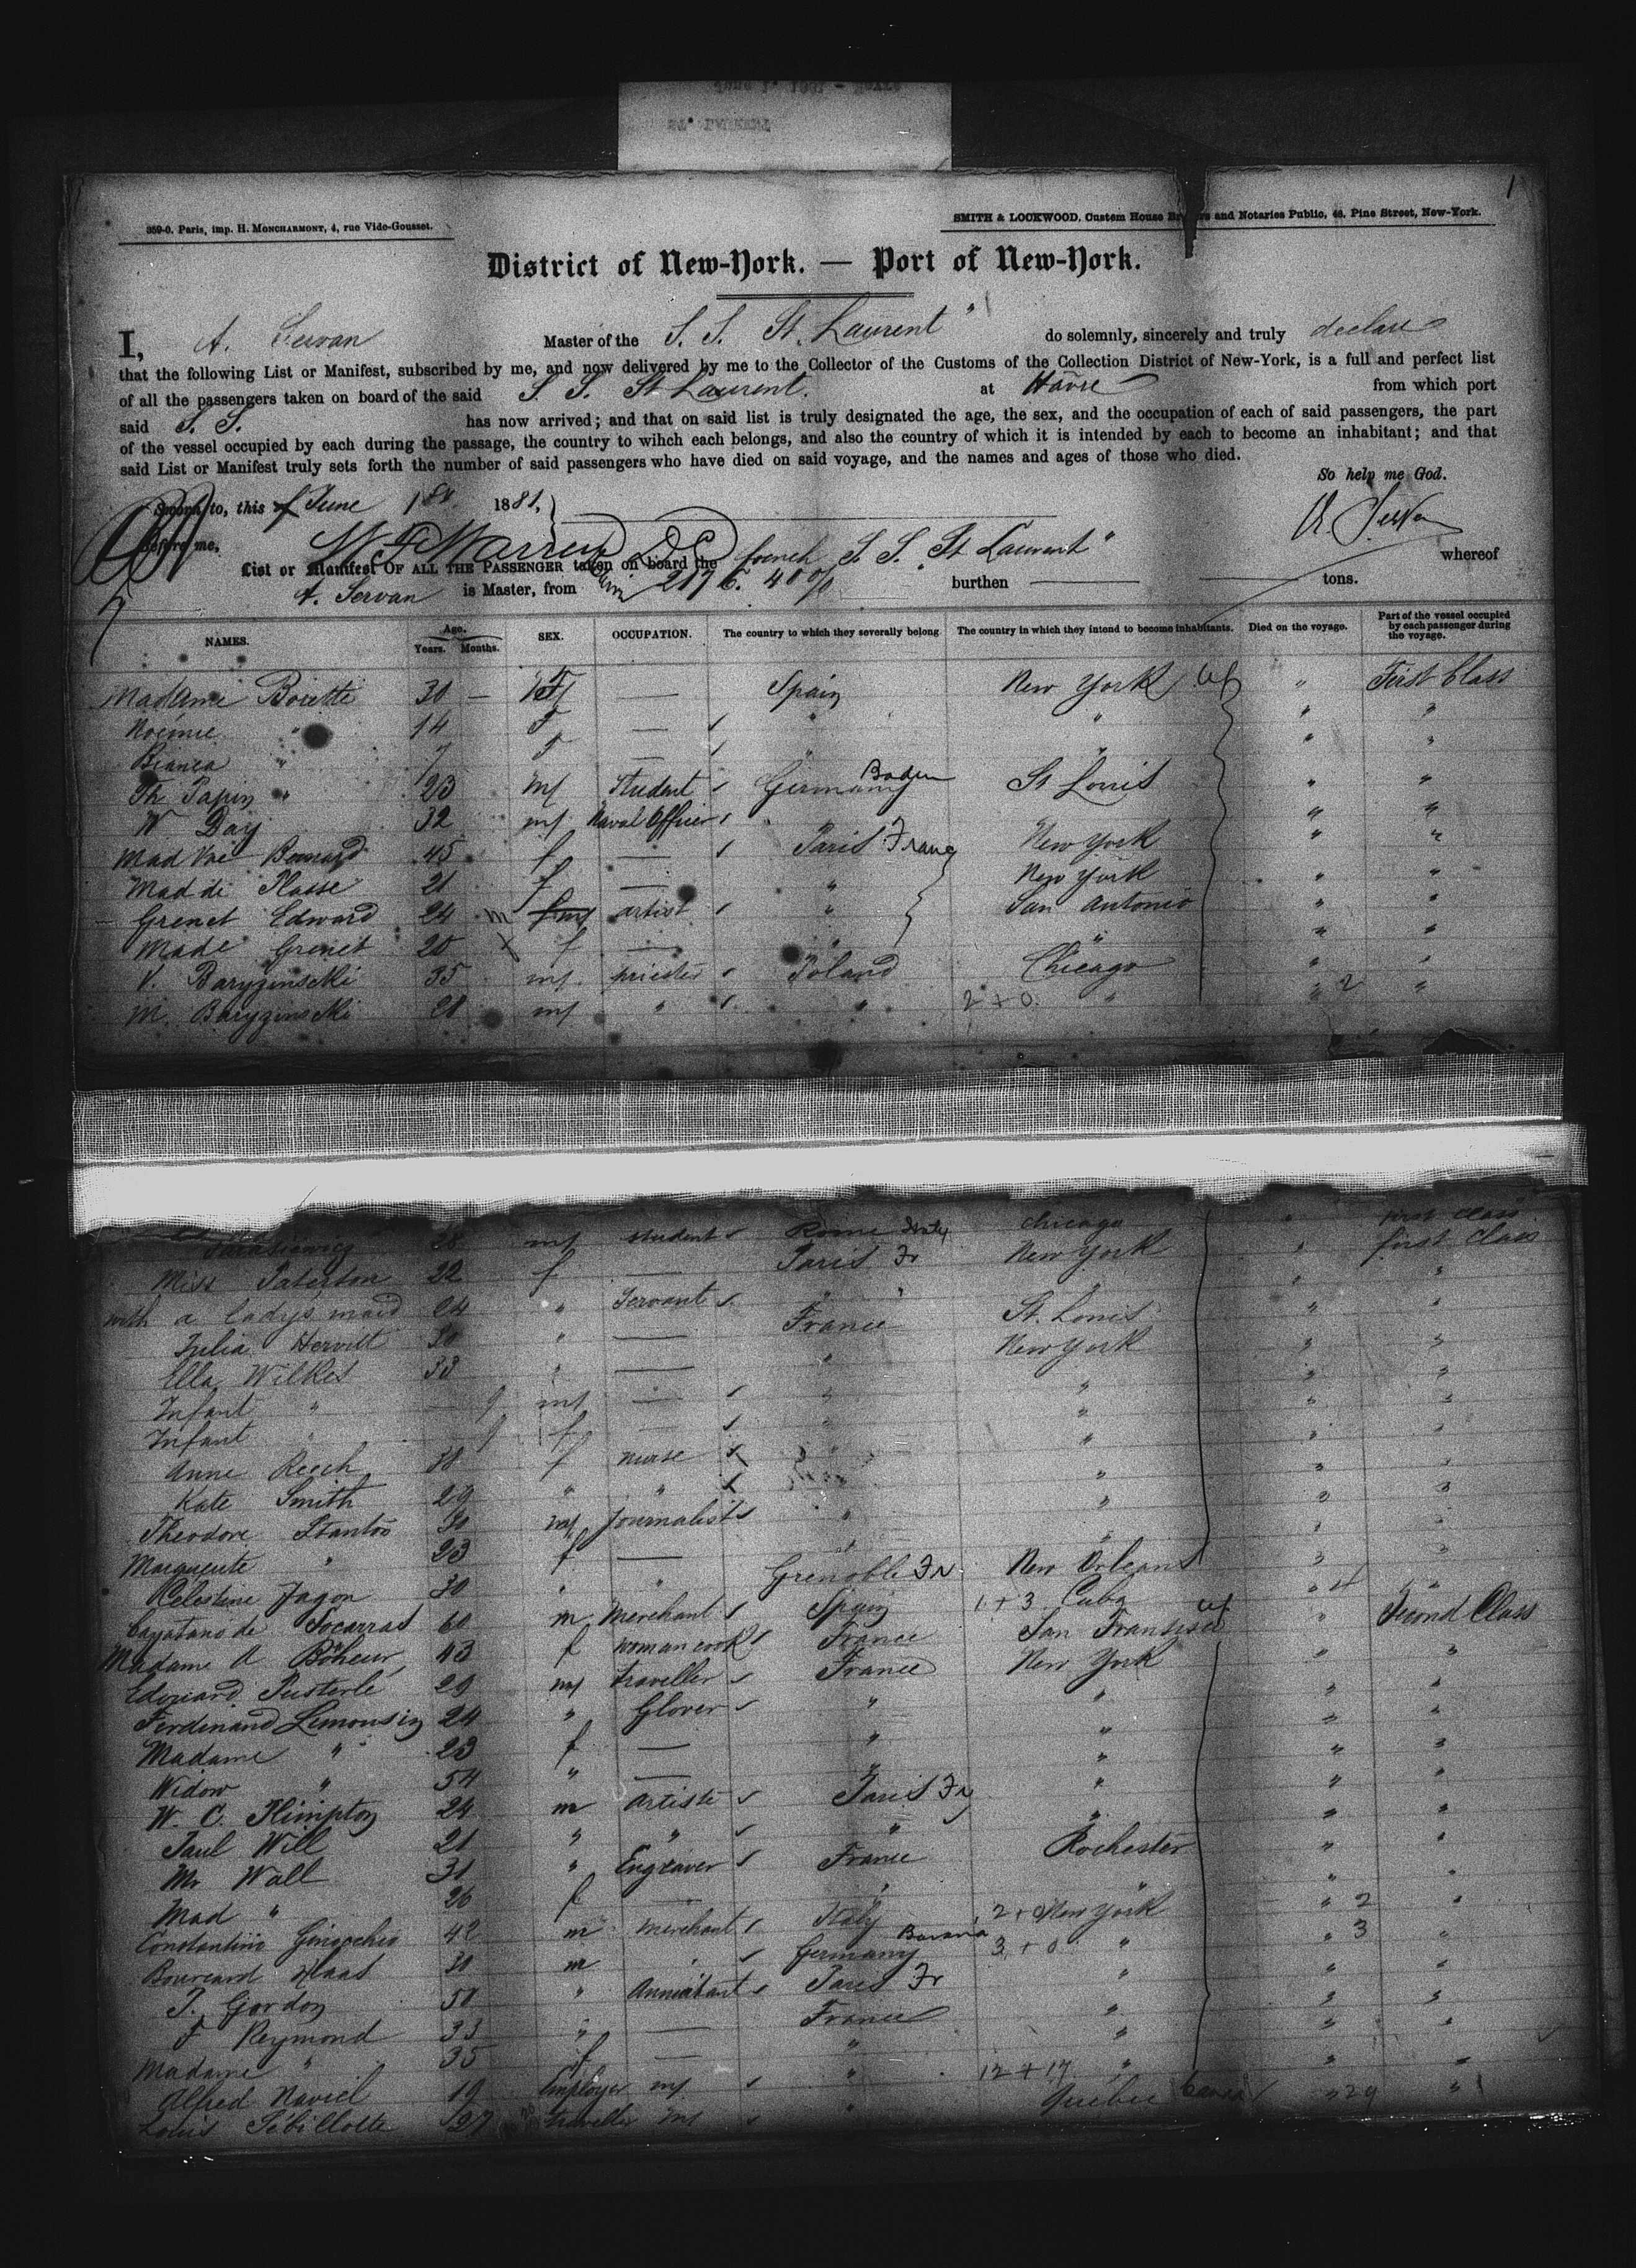 359-0. Paris, imp. H. MONCHARMONT, 4, rue Vide-Gousset.
SMITH & LOCKWOOD, Custom House and Notaries Public, 46, Pine Street, New-York.
1
District of New-York. — Port of New-York.
I, A. Servan Master of the S. S. St. Laurent" do solemnly, sincerely and truly declare
that the following List or Manifest, subscribed by me, and now delivered by me to the Collector of the Customs of the Collection District of New-York, is a full and perfect list
of all the passengers taken on board of the said S. S. St Laurent. at Havre from which port
said S. S. has now arrived; and that on said list is truly designated the age, the sex, and the occupation of each of said passengers, the part
of the vessel occupied by each during the passage, the country to wihch each belongs, and also the country of which it is intended by each to become an inhabitant; and that
said List or Manifest truly sets forth the number of said passengers who have died on said voyage, and the names and ages of those who died.
So help me God.
Sworn to, this of June 1st 1881,
A. Servan
Before me,
List or Manifest OF ALL THE PASSENGER taken on board the french S. S. St Laurent" whereof
A. Servan is Master, from burthen tons.
NAMES. Age. Years. Months. SEX. OCCUPATION. The country to which they severally belong The country in which they intend to become inhabitants. Died on the voyage. Part of the vessel occupied by each passenger during the voyage.
Madame 30 — F — Spain New York " First Class
Noémie " 14 F — " " " "
Bianca " 7 F — " " " "
Th Papin " 23 m Student Germany Baden St Louis " "
W Day 32 m Naval Officer " " " "
Mad Vve Bernard 45 f — Paris France New York " "
Mad de Plasse 21 f — " New York " "
Grenet Edward 24 m artist " San Antonio " "
Made Grenet 20 f — " " " "
V. Baryzinscki 35 m priester Poland Chicago " "
M. Baryzinscki 28 m " " 2 + 0 " " 2 "
28 m student Rome Italy Chicago " first class
Miss Paterson 22 f — Paris Fr New York " first class
with a lady's maid 24 " Servant " " " "
Julia 30 " — France St. Louis " "
Ella Wilkes 33 " — " New York " "
Infant " — 9 m — " " " "
Infant " 9 f — " " " "
Anne Reech 38 f nurse " " " "
Kate Smith 29 " " " " "
Theodore Stanton 30 m Journalist " " " "
Marguerite " 23 f — " " " "
Celestine Jagon 30 " " Grenoble Fr New Orleans " 4 "
Cayatano de Socarras 60 m Merchant Spain 1 + 3 Cuba " Second Class
Madame A 43 f woman cook France San Fransisco " "
Edouard Pusterle 29 m traveller France New York " "
Ferdinand Limousin 24 " Glover " " " "
Madame " 23 f — " " " "
Widow " 54 " — " " " "
W. C. Plimpton 24 m artiste Paris Fr " " "
Paul Will 21 " " " " " "
Mr Wall 31 " Engraver France Rochester " "
Mad " 26 f — " " " "
Constantino 42 m merchant Italy 2 + 0 New York " 2 "
Haas 30 m " Germany Bavaria 3 + 0 " " 3 "
P. Gordon 50 " Paris Fr " " "
F Reymond 33 " — France " " "
Madame " 35 f — " " " "
Alfred Naviel 19 Employer m " 12 + 17 " " "
Louis Sébillotte 27 traveller m " Quebec Canada " 29 "